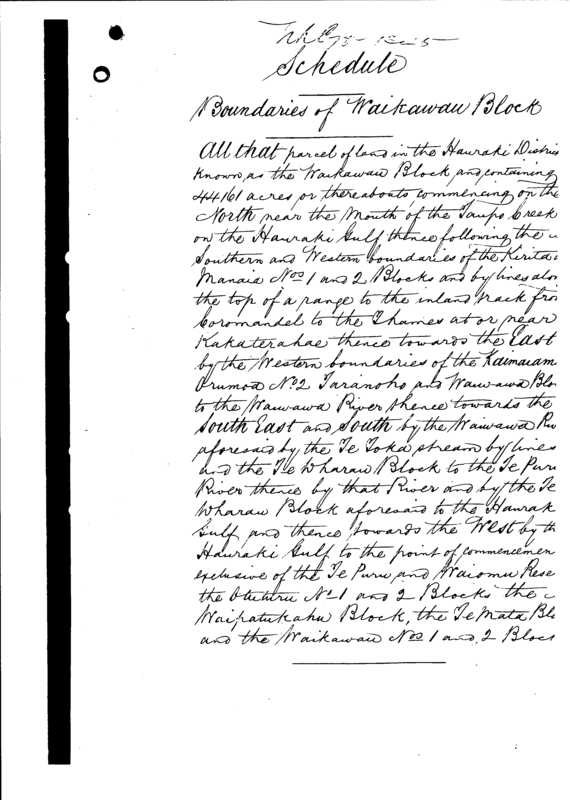 Schedule
Boundaries of Waikawau Block
All that parcel of land in the Hauraki Distric
known as the Waikawau Block and containing
44161 acres or thereabouts commencing on the
North near the Mouth of the Taupo Creek
on the Hauraki Gulf thence following the
Southern and Western boundaries of the Kirita
Manaia Nos 1 and 2 Blocks and by lines alon
the top of a range to the inland track fro
Coromandel to the Thames at or near
Kakaterahae thence towards the East
by the Western boundaries of the Kaimaram
Orumoa No 2 Taranoho and Wauwawa Blo
to the Wauwawa River thence towards the
South East and South by the Waiwawa Riv
aforesaid by the Te Toka stream by lines
and the Te Wharau Block to the Te Puru
River thence by that River and by the Te
Wharau Block aforesaid to the Haurak
Gulf and thence towards the West by th
Hauraki Gulf to the point of commencemen
exclusive of the Te Puru and Waiomu Rese
the Otuturu No 1 and 2 Blocks the
Waipatukahu Block, the Te Mata Bl
and the Waikawau Nos 1 and 2 Block